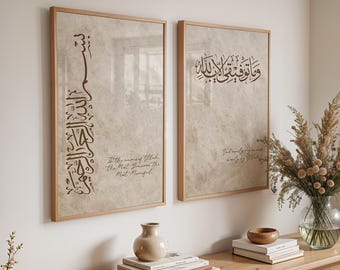 بسم الله الرحمن الرحيم
In the name of Allah,
the Most Gracious, the
Most Merciful.
وما توفيقي إلا بالله